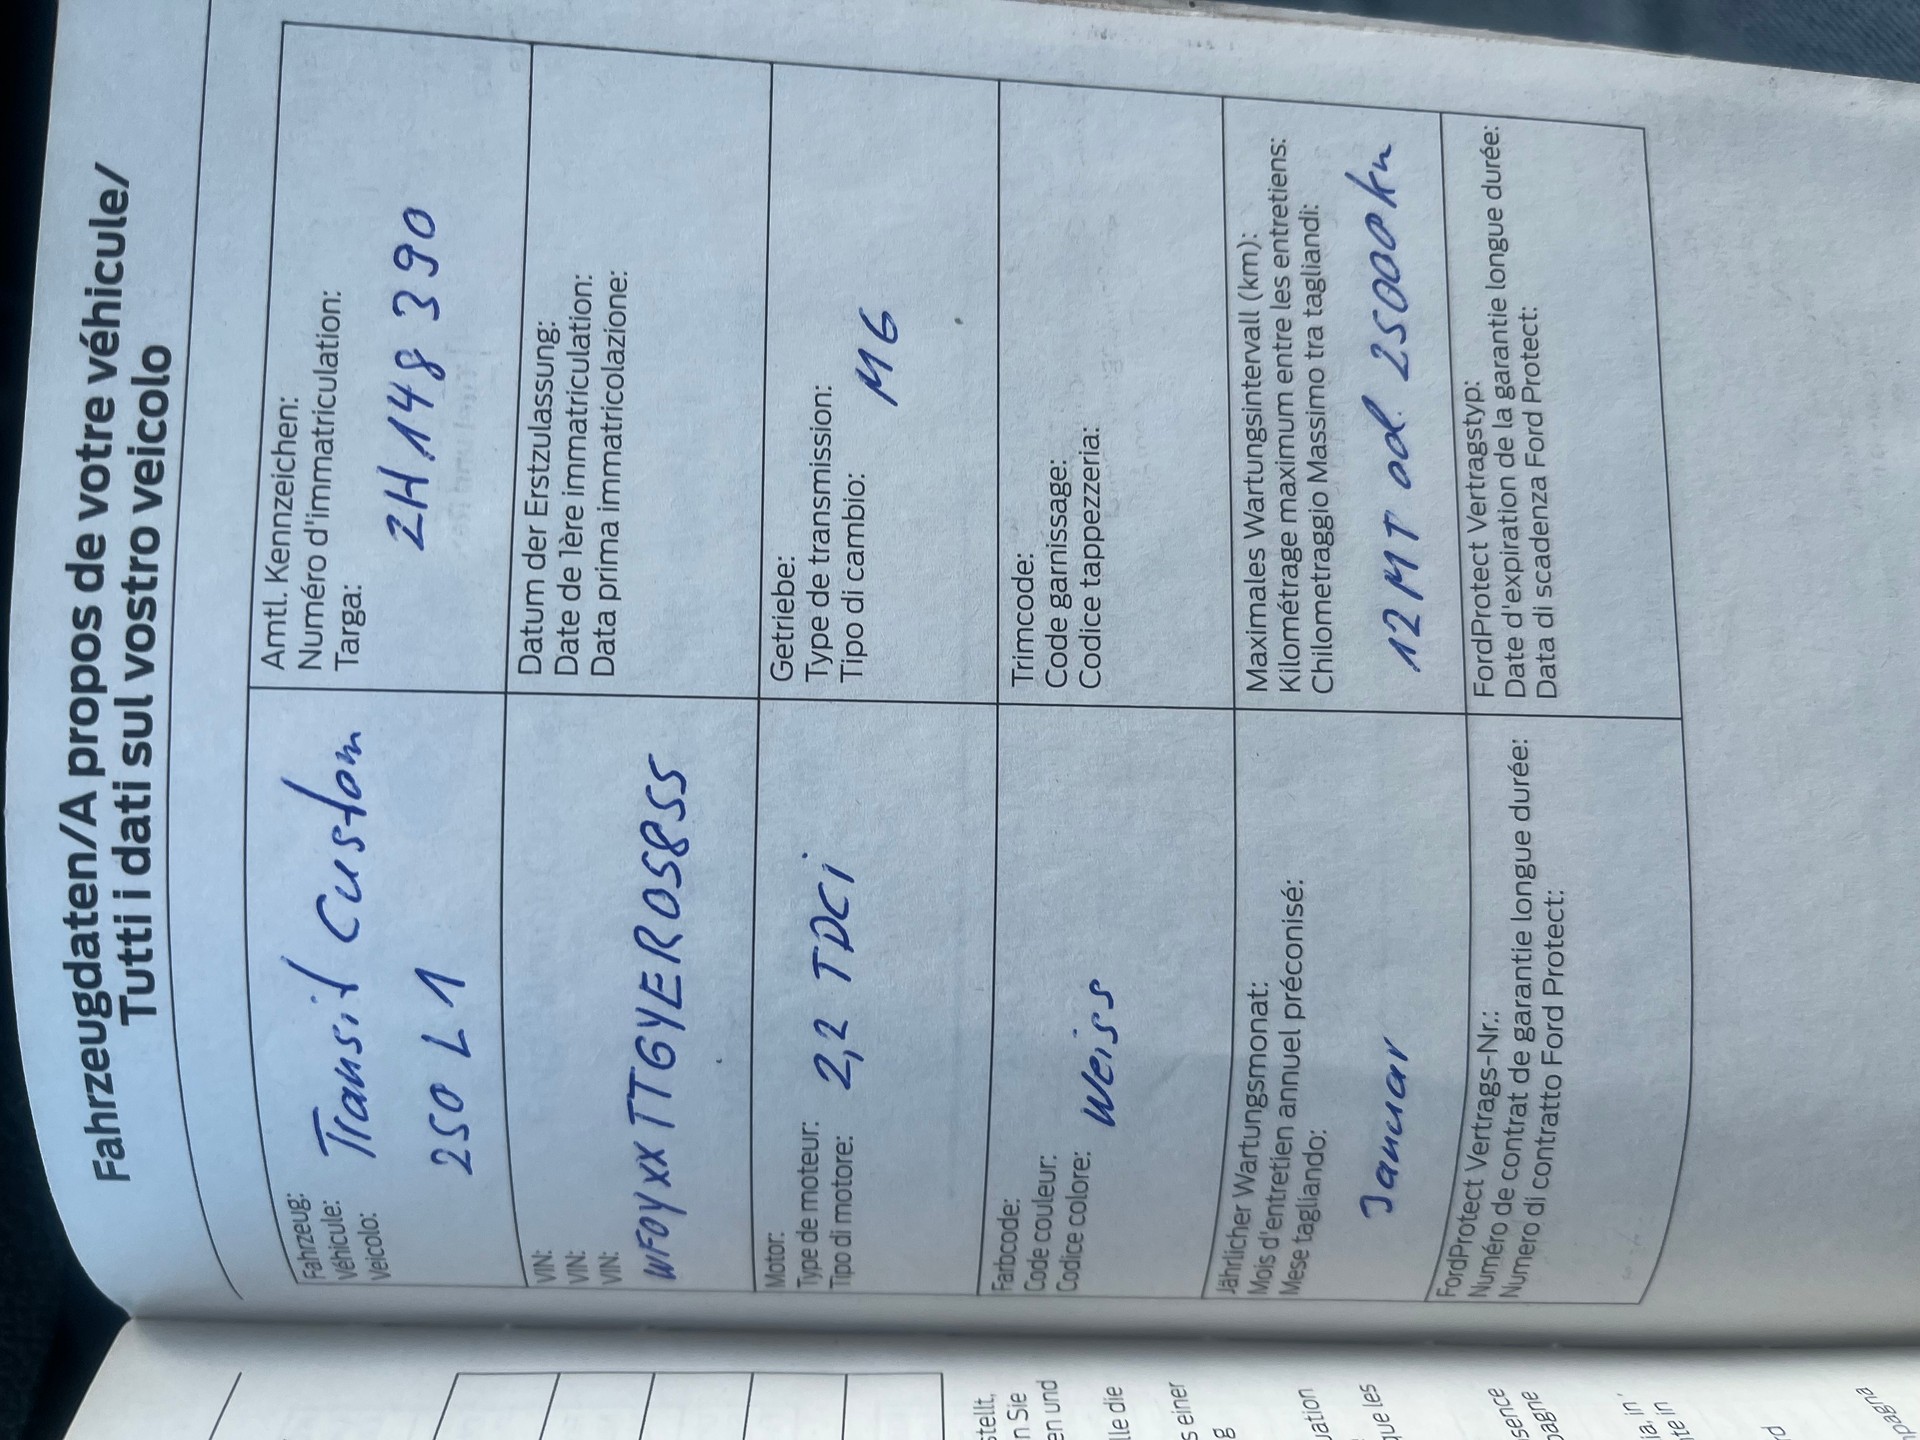 Fahrzeugdaten/A propos de votre véhicule/
Tutti i dati sul vostro veicolo
Fahrzeug:
Véhicule:
Veicolo:
Transit Custom
250 L1
Amtl. Kennzeichen:
Numéro d'immatriculation:
Targa:
ZH 148 390
VIN:
VIN:
VIN:
WF0YXXTTGYER05855
Datum der Erstzulassung:
Date de 1ère immatriculation:
Data prima immatricolazione:
Motor:
Type de moteur:
Tipo di motore:
2,2 TDCi
Getriebe:
Type de transmission:
Tipo di cambio:
M6
Farbcode:
Code couleur:
Codice colore:
Weiss
Trimcode:
Code garnissage:
Codice tappezzeria:
Jährlicher Wartungsmonat:
Mois d'entretien annuel préconisé:
Mese tagliando:
Januar
Maximales Wartungsintervall (km):
Kilométrage maximum entre les entretiens:
Chilometraggio Massimo tra tagliandi:
12 MT od. 25000 km
FordProtect Vertrags-Nr.:
Numéro de contrat de garantie longue durée:
Numero di contratto Ford Protect:
FordProtect Vertragstyp:
Date d'expiration de la garantie longue durée:
Data di scadenza Ford Protect:
stellt,
n Sie
en und
lle die
s einer
g
uation
que les
sence
pagne
ia, in
te in
rd
pagna